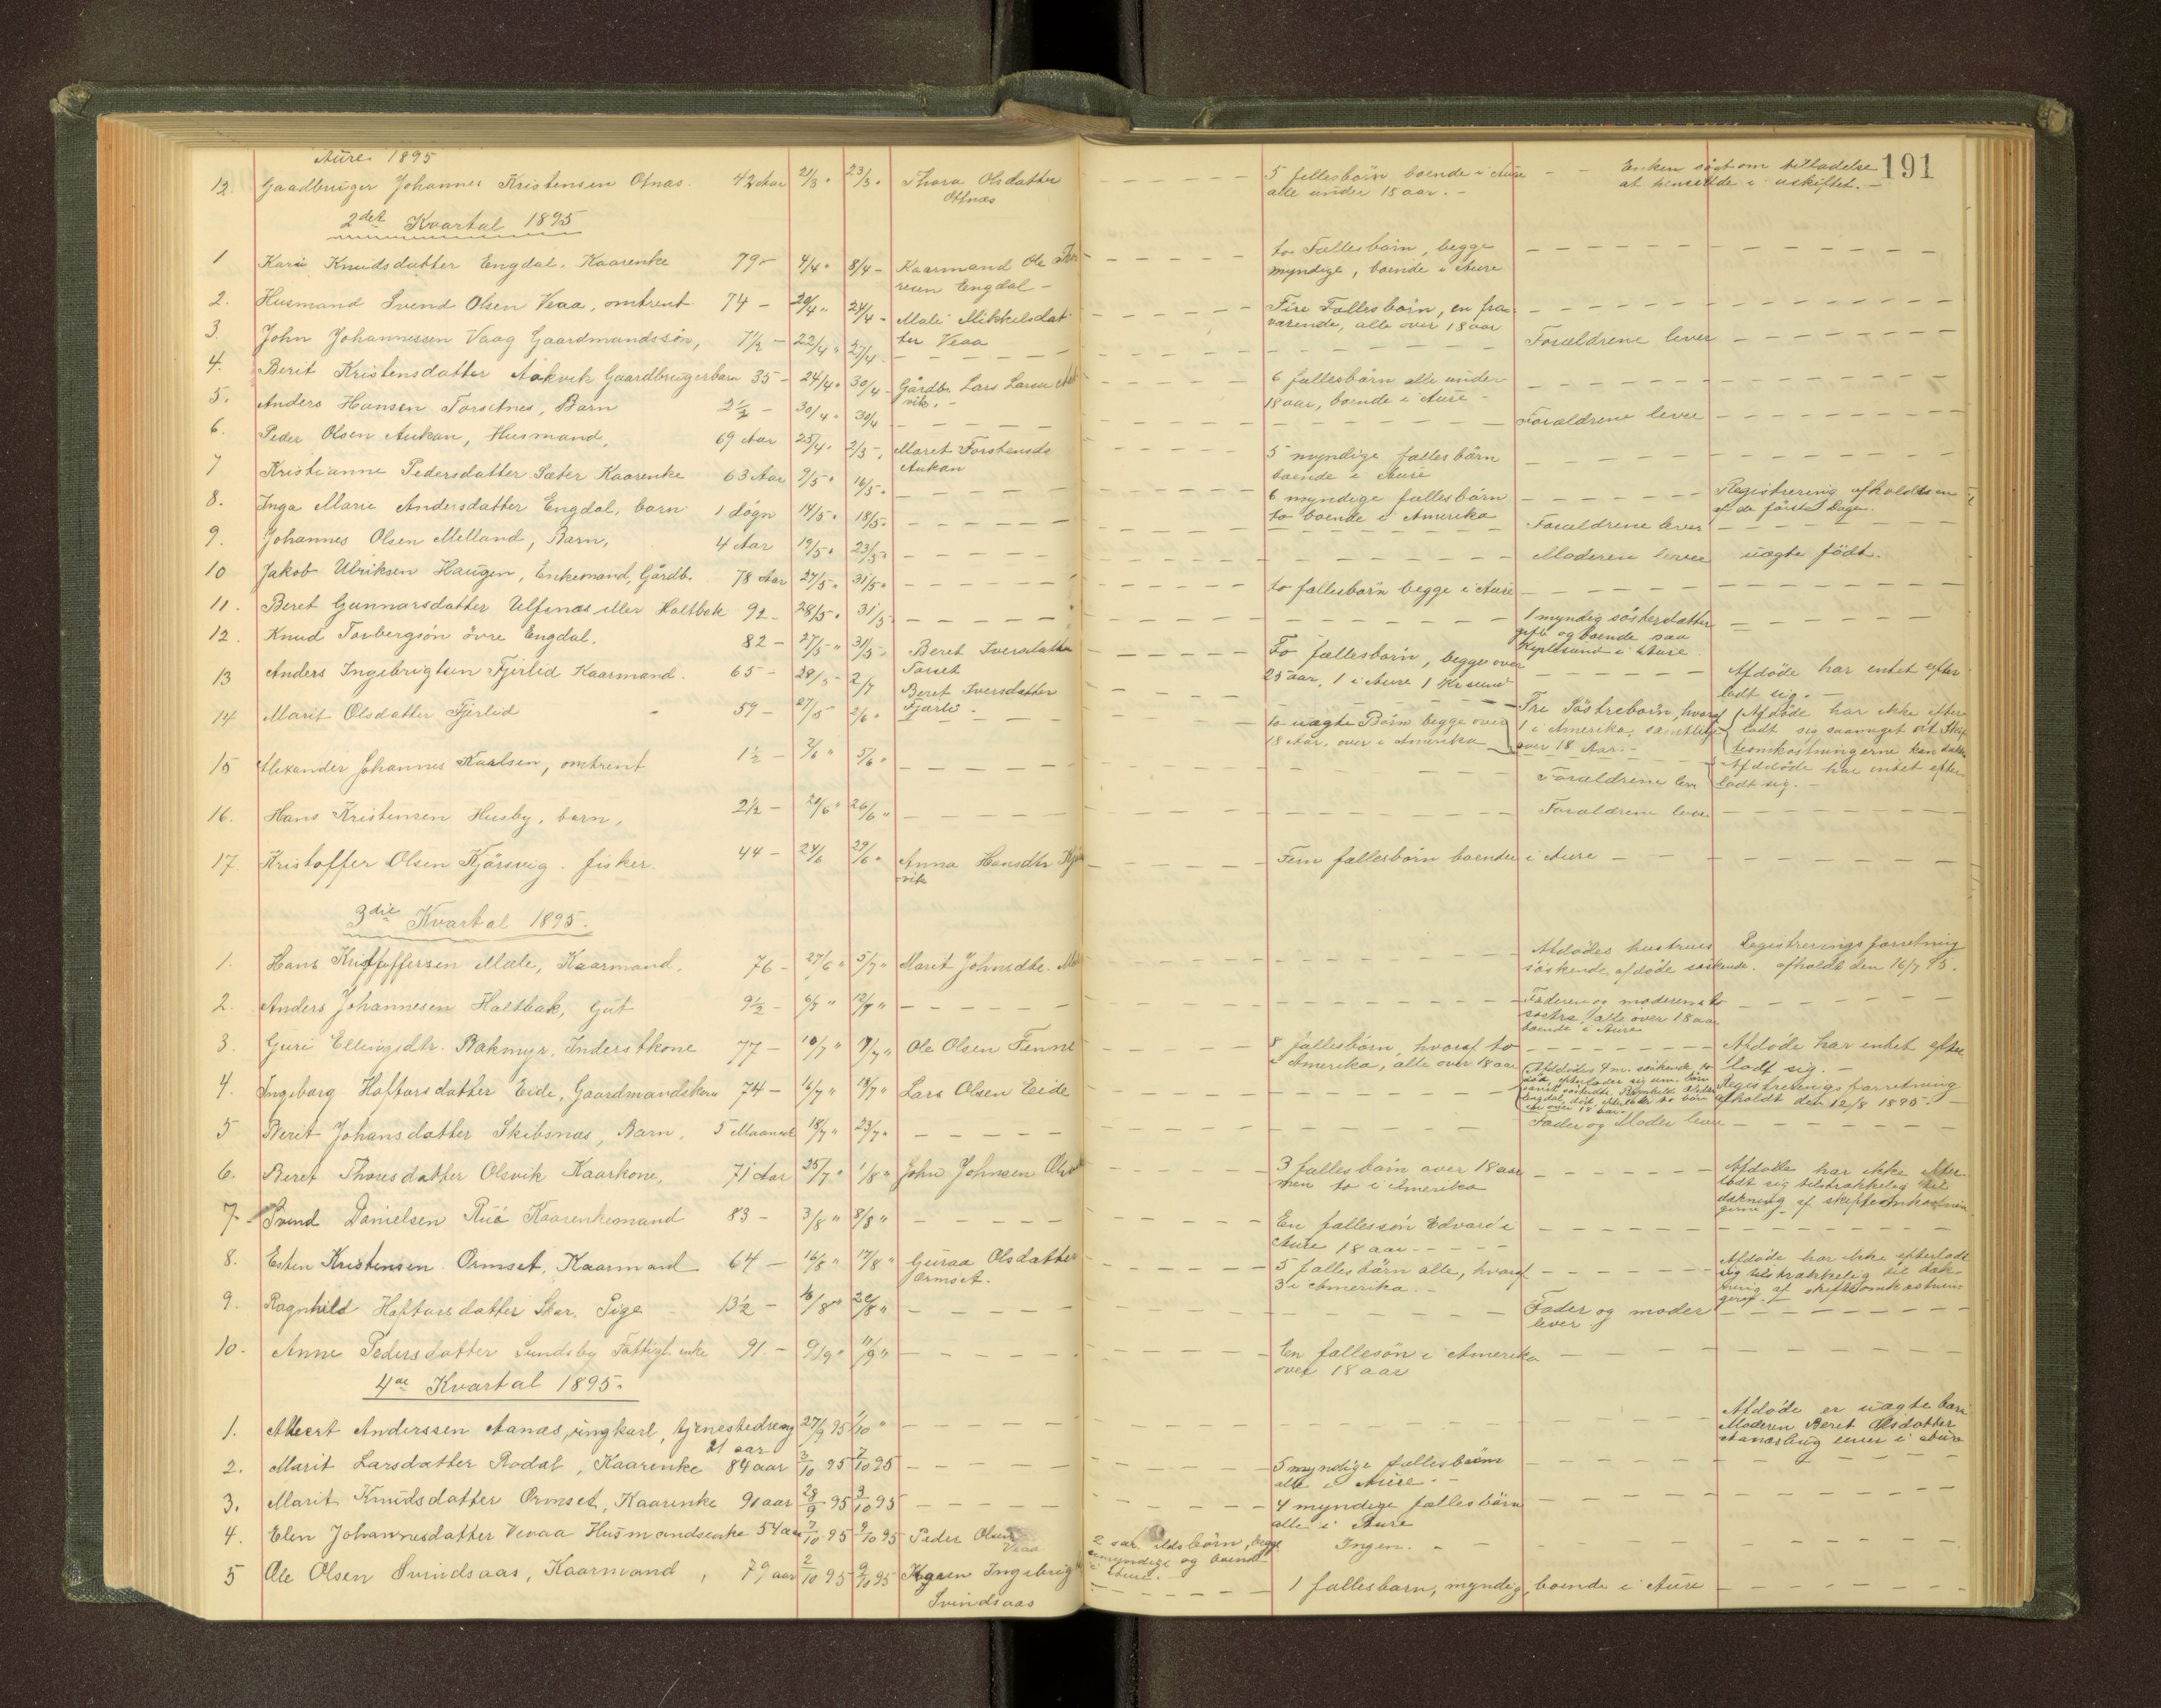 Aure 1895
191
12. Gaardbruger Johannes Kristensen Otnæs. 42 Aar 21/3 " 23/3 " Thora Olsdatter Otnæs — 5 fællesbörn boende i Aure alle under 18 aar. — Enken sögt om tilladelse at hensidde i uskiftet. —
2det Kvartal 1895
1 Kari Knudsdatter Engdal. Kaarenke 79 — 4/4 " 8/4 — Kaarmand Ole Engdal — to Fællesbörn, begge myndige, boende i Aure
2. Husmand Svend Olsen Veaa, omtrent 74 — 20/4 " 24/4 — Mali Mikkelsdatter Veaa — Fire Fællesbörn, en fraværende, alle over 18 aar
3. John Johannessen Vaag Gaardmandssön, 7 1/2 — 22/4 " 27/4 — Forældrene lever
4. Berit Kristensdatter Aakvik Gaardbrugerbarn 35 — 24/4 " 30/4 — Gårdb. Lars Larsen Aakvik. — 6 fællesbörn alle under 18 aar, boende i Aure —
5. Anders Hansen Torsetnes, Barn 2 1/2 — 30/4 " 30/4 — Forældrene lever
6. Peder Olsen Aukan, Husmand, 69 Aar 25/4 " 2/5 — Maret Torstensdt Aukan — 5 myndige fællesbörn boende i Aure
7 Kristianne Pedersdatter Sæter Kaarenke 63 Aar 9/5 " 16/5 " — 6 myndige fællesbörn to boende i Amerika — Registrering afholdes en af de förste Dage.
8. Inga Marie Andersdatter Engdal, barn 1 dögn 14/5 " 18/5 " — Forældrene lever
9. Johannes Olsen Melland, Barn, 4 Aar 19/5 " 23/5 " — Moderen lever uægte födt.
10 Jakob Ulriksen Haugen, Enkemand, Gårdb. 78 Aar 27/5 " 31/5 " — to fællesbörn begge i Aure
11. Beret Gunnarsdatter Ulfsnæs eller Holtbak 92 — 28/5 " 31/5 — 1 myndig sösterdatter gift og boende paa Kiplesund i Aure.
12. Knud Torbergsön övre Engdal. 82 — 27/5 " 31/5 " Beret Iversdatter Torset — To fællesbörn, begge over 25 aar, 1 i Aure 1 Krsund
13 Anders Ingebrigtsen Fjerlid Kaarmand. 65 — 28/5 — 2/7 Beret Iversdatter Fjærli. — Afdöde har entet efterladt sig. —
14 Marit Olsdatter Fjerlid 59 — 27/5 2/6 " — to uægte Börn begge over 18 Aar, over i Amerika — Tre Söstrebörn, hvoraf 1 i Amerika, samtlige over 18 Aar. — Afdöde har ikke efterladt sig saameget at Skifteomkostningerne kan dækkes
15 Alexander Johannes Karlsen, omtrent 1 1/2 — 2/6 " 5/6 " — Forældrene lever Afdöde har entet efterladt sig. —
16. Hans Kristensen Husby, barn, 2 1/2 — 20/6 " 26/6 " — Forældrene lever
17. Kristoffer Olsen Kjörsvig. fisker. 44 — 24/6 29/6 " Anna Hansdtr — Fem fællesbörn boende i Aure —
3die Kvartal 1895.
1. Hans Kristoffersen Mæle, Kaarmand, 76 — 27/6 " 5/7 " Marit Johnsdtr. — Afdödes hustrues söskende, afdöde söskende. Registrerings forretning afholdt den 16/7 95.
2. Anders Johannesen Holtbak, Gut 9 1/2 — 6/7 " 12/7 " — Faderen og moderens to söstre, alle over 18 aar boende i Aure
3. Guri Ellingsdtr. Bakmyr, Inderstkone 77 — 10/7 " 17/7 " Ole Olsen Tenne — 8 fællesbörn, hvoraf to i Amerika, alle over 18 aar — Afdöde har entet efterladt sig. —
4. Ingeborg Haftorsdatter Eide, Gaardmandskone 74 — 16/7 " 18/7 " Lars Olsen Eide — Registrerings forretning afholdt den 12/8 1895. —
5 Berit Johansdatter Skibsnæs, Barn, 5 Maaneder 18/7 " 23/7 " — Fader og Moder lever
6. Beret Thoresdatter Olsvik Kaarkone, 71 Aar 25/7 " 1/8 " John Johnsen — 3 fællesbörn over 18 aar men to i Amerika — Afdöde har ikke efterladt sig tilstrækkelig til dækning af skifteomkostningerne. —
7 Svend Danielsen Rüö Kaarenkemand 83 — 3/8 " 8/8 " — En fællessön Edvard i Aure 18 aar
8. Esten Kristensen Ormset, Kaarmand 64 — 16/8 " 17/8 " Guraa Olsdatter Ormset. — 5 fællesbörn alle, hvoraf 3 i Amerika. — Afdöde har ikke efterladt sig tilstrækkelig til dækning af skifteomkostningerne. —
9. Ragnhild Haftorsdatter Skar, Pige 13 1/2 — 16/8 " 20/8 " — Fader og moder lever
10. Anne Pedersdatter Sundsby Fattigl. enke 91 — 9/9 " 11/9 " — En fællesön i Amerika over 18 aar
4de Kvartal 1895.
1. Albert Anderssen Aanæs, ungkarl, tjenestedreng 21 aar 27/9 95 1/10 " — Afdöde er uægte barn Moderen Beret Olsdatter Aanæsbug lever i Aure
2. Marit Larsdatter Rodal, Kaarenke 84 aar 3/10 95 7/10 95 — 5 myndige fællesbörn alle i Aure. —
3. Marit Knudsdatter Ormset, Kaarenke 91 aar 28/9 95 3/10 95 — 4 myndige fællesbörn alle i Aure
4. Elen Johannesdatter Vevaa Husmandsenke 54 aar 7/10 95 9/10 95 Peder Olsen Veaa 2 börn, begge myndige og boende i Aure. Ingen. —
5 Ole Olsen Svindsaas, Kaarmand, 79 aar 2/10 95 9/10 95 Karen Ingebrigt Svindsaas — 1 fællesbarn, myndig, boende i Aure